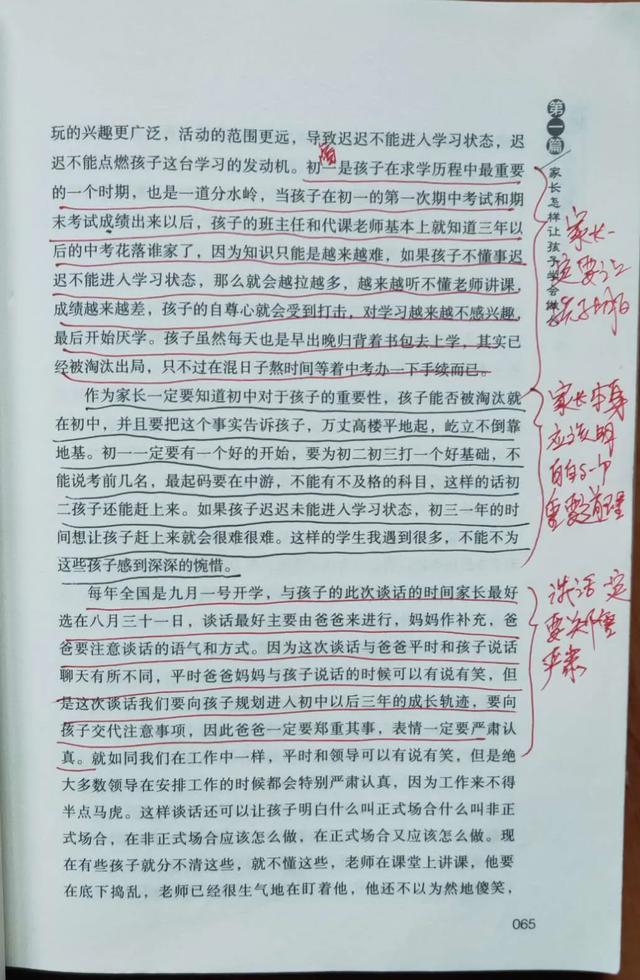 玩的兴趣更广泛，活动的范围更远，导致迟迟不能进入学习状态，迟
迟不能点燃孩子这台学习的发动机。初一是孩子在求学历程中最重要
的一个时期，也是一道分水岭，当孩子在初一的第一次期中考试和期
末考试成绩出来以后，孩子的班主任和代课老师基本上就知道三年以
后的中考花落谁家了，因为知识只能是越来越难，如果孩子不懂事迟
迟不能进入学习状态，那么就会越拉越多，越来越听不懂老师讲课，
成绩越来越差，孩子的自尊心就会受到打击，对学习越来越不感兴趣，
最后开始厌学。孩子虽然每天也是早出晚归背着书包去上学，其实已
经被淘汰出局，只不过在混日子熬时间等着中考办一下手续而已。
作为家长一定要知道初中对于孩子的重要性，孩子能否被淘汰就
在初中，并且要把这个事实告诉孩子，万丈高楼平地起，屹立不倒靠
地基。初一一定要有一个好的开始，要为初二初三打一个好基础，不
能说考前几名，最起码要在中游，不能有不及格的科目，这样的话初
二孩子还能赶上来。如果孩子迟迟未能进入学习状态，初三一年的时
间想让孩子赶上来就会很难很难。这样的学生我遇到很多，不能不为
这些孩子感到深深的惋惜。
每年全国是九月一号开学，与孩子的此次谈话的时间家长最好
选在八月三十一日，谈话最好主要由爸爸来进行，妈妈作补充，爸
爸要注意谈话的语气和方式。因为这次谈话与爸爸平时和孩子说话
聊天有所不同，平时爸爸妈妈与孩子说话的时候可以有说有笑，但
是这次谈话我们要向孩子规划进入初中以后三年的成长轨迹，要向
孩子交代注意事项，因此爸爸一定要郑重其事，表情一定要严肃认
真。就如同我们在工作中一样，平时和领导可以有说有笑，但是绝
大多数领导在安排工作的时候都会特别严肃认真，因为工作来不得
半点马虎。这样谈话还可以让孩子明白什么叫正式场合什么叫非正
式场合，在非正式场合应该怎么做，在正式场合又应该怎么做。现
在有些孩子就分不清这些，就不懂这些，老师在课堂上讲课，他要
在底下捣乱，老师已经很生气地在盯着他，他还不以为然地傻笑，
第一篇
家长怎样让孩子学会
家长一
定要让
孩子明白
家长本身
应该明
白这个
重要道理
谈话一定
要郑重
严肃
065